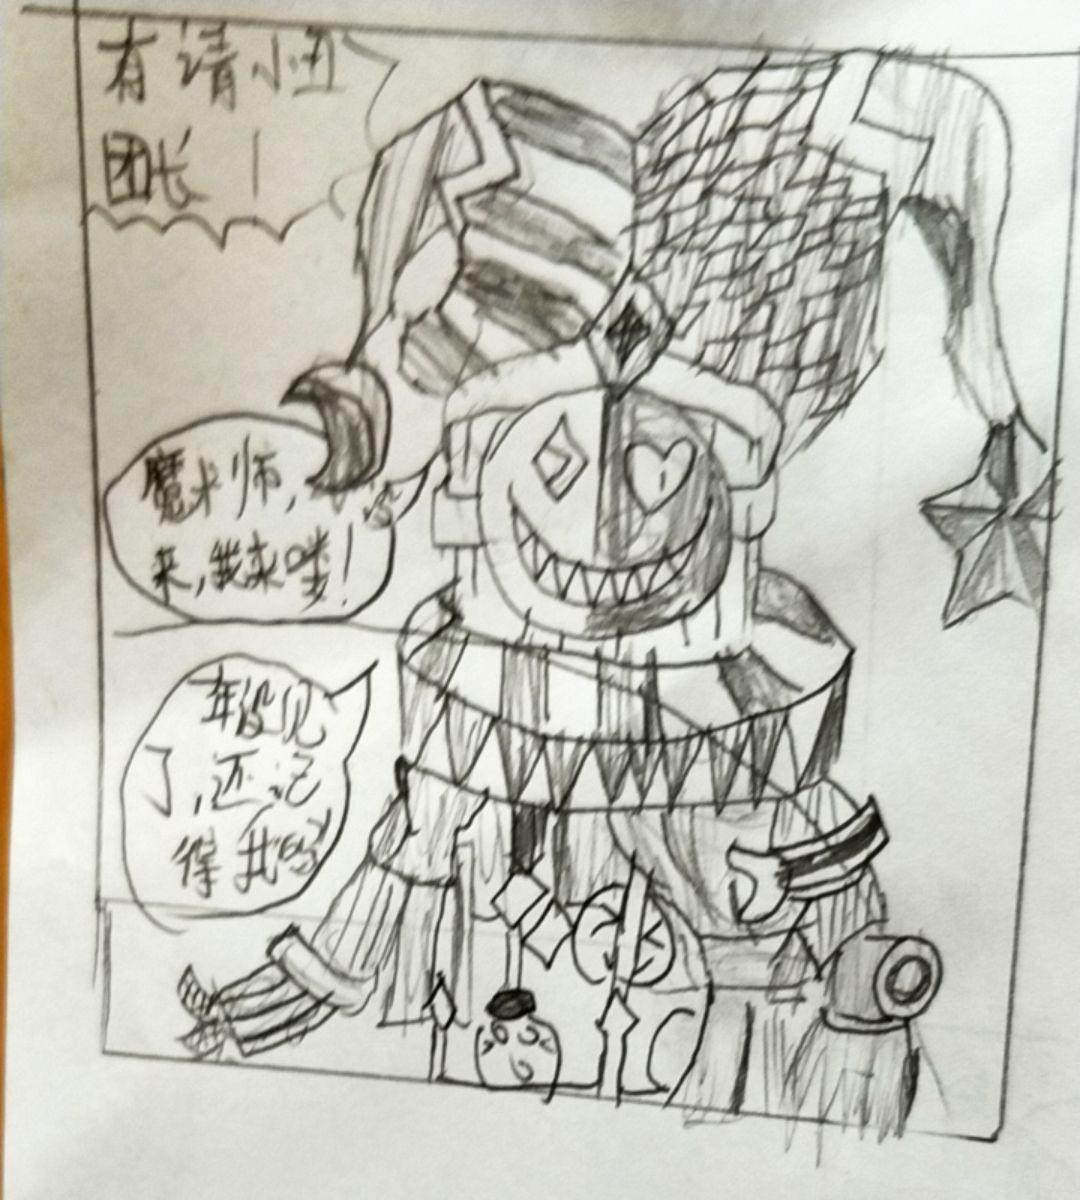 有请小丑
团长！
魔术师，
来，我来喽！
年没见
了，还记
得我吗